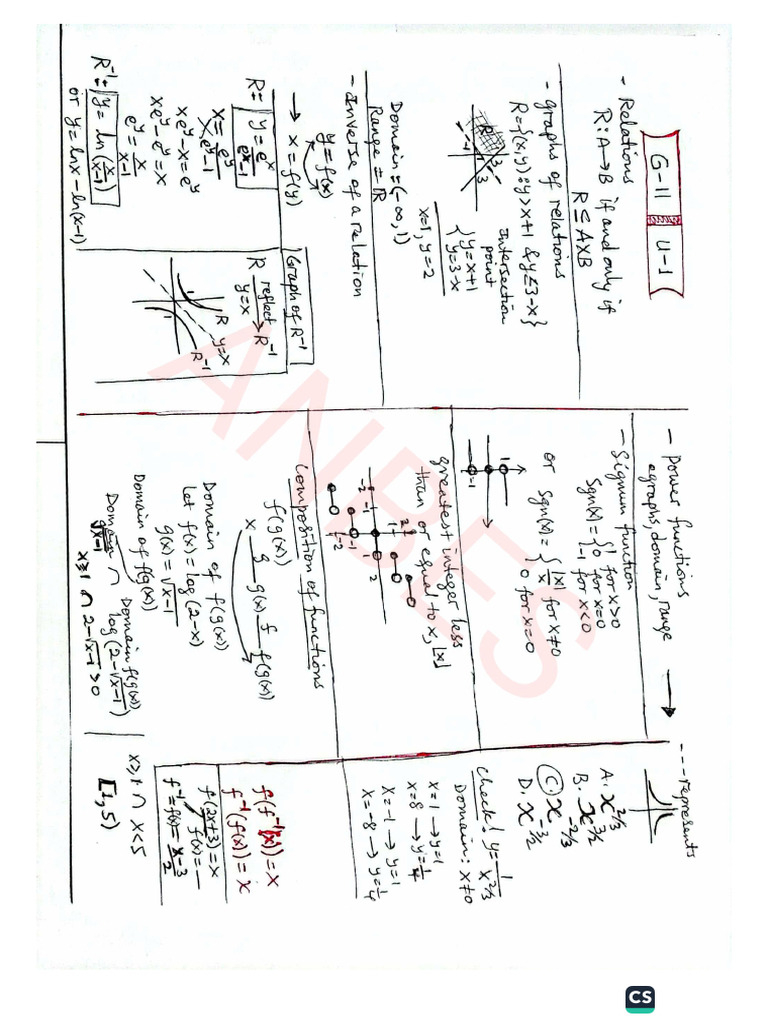 G-11 U-1
- Relations
R: A→B if and only if
R ⊆ A×B
- graphs of relations
R={(x,y): y>x+1 & y≤3-x}
Intersection
point
{ y=x+1
{ y=3-x
x=1, y=2
R
3
1
-1
3
Domain = (-∞, 1)
Range = ℝ
- Inverse of a relation
y=f(x)
→ x=f(y)
R= y = e^x/(e^x-1)
x = e^y/(e^y-1)
xe^y - x = e^y
xe^y - e^y = x
e^y = x/(x-1)
R^-1: y = ln(x/(x-1))
or y = ln x - ln(x-1)
Graph of R^-1
R reflect → R^-1
y=x
R
y=x
R^-1
1
1
- power functions
graphs, domain, range
- Signum function
Sgn(x) = { 1 for x>0
0 for x=0
-1 for x<0
or
Sgn(x) = { |x|/x for x≠0
0 for x=0
1
-1
greatest integer less
than or equal to x, ⌊x⌋
2
1
-2 -1
1 2
-1
-2
Composition of functions
f(g(x))
x g g(x) f f(g(x))
Domain of f(g(x))
Let f(x) = log(2-x)
g(x) = √x-1
Domain of f(g(x))
Domain ∩ Domain f(g(x))
√x-1 log(2-√x-1)
x≥1 ∩ 2-√x-1 >0
x≥1 ∩ x<5
[1, 5)
--- represents
A. x^2/3
B. x^3/2
C. x^-2/3
D. x^-3/2
Check! y = 1/x^2/3
Domain: x≠0
x=1 → y=1
x=8 → y=1/4
x=-1 → y=1
x=-8 → y=1/4
f(f^-1(x)) = x
f^-1(f(x)) = x
f(2x+3) = x
f(x) = —
f^-1 = f(x) = x-3/2
ANBES
CS